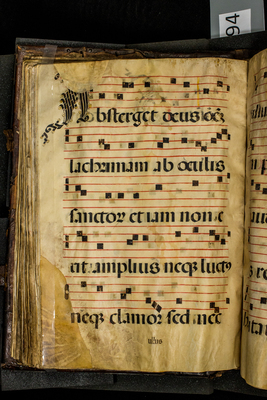 94
Absterget deus oēz
lachrimam ab oculis
sanctor et iam non e
rit amplius neqꝫ luctꝰ
neqꝫ clamor sed nec